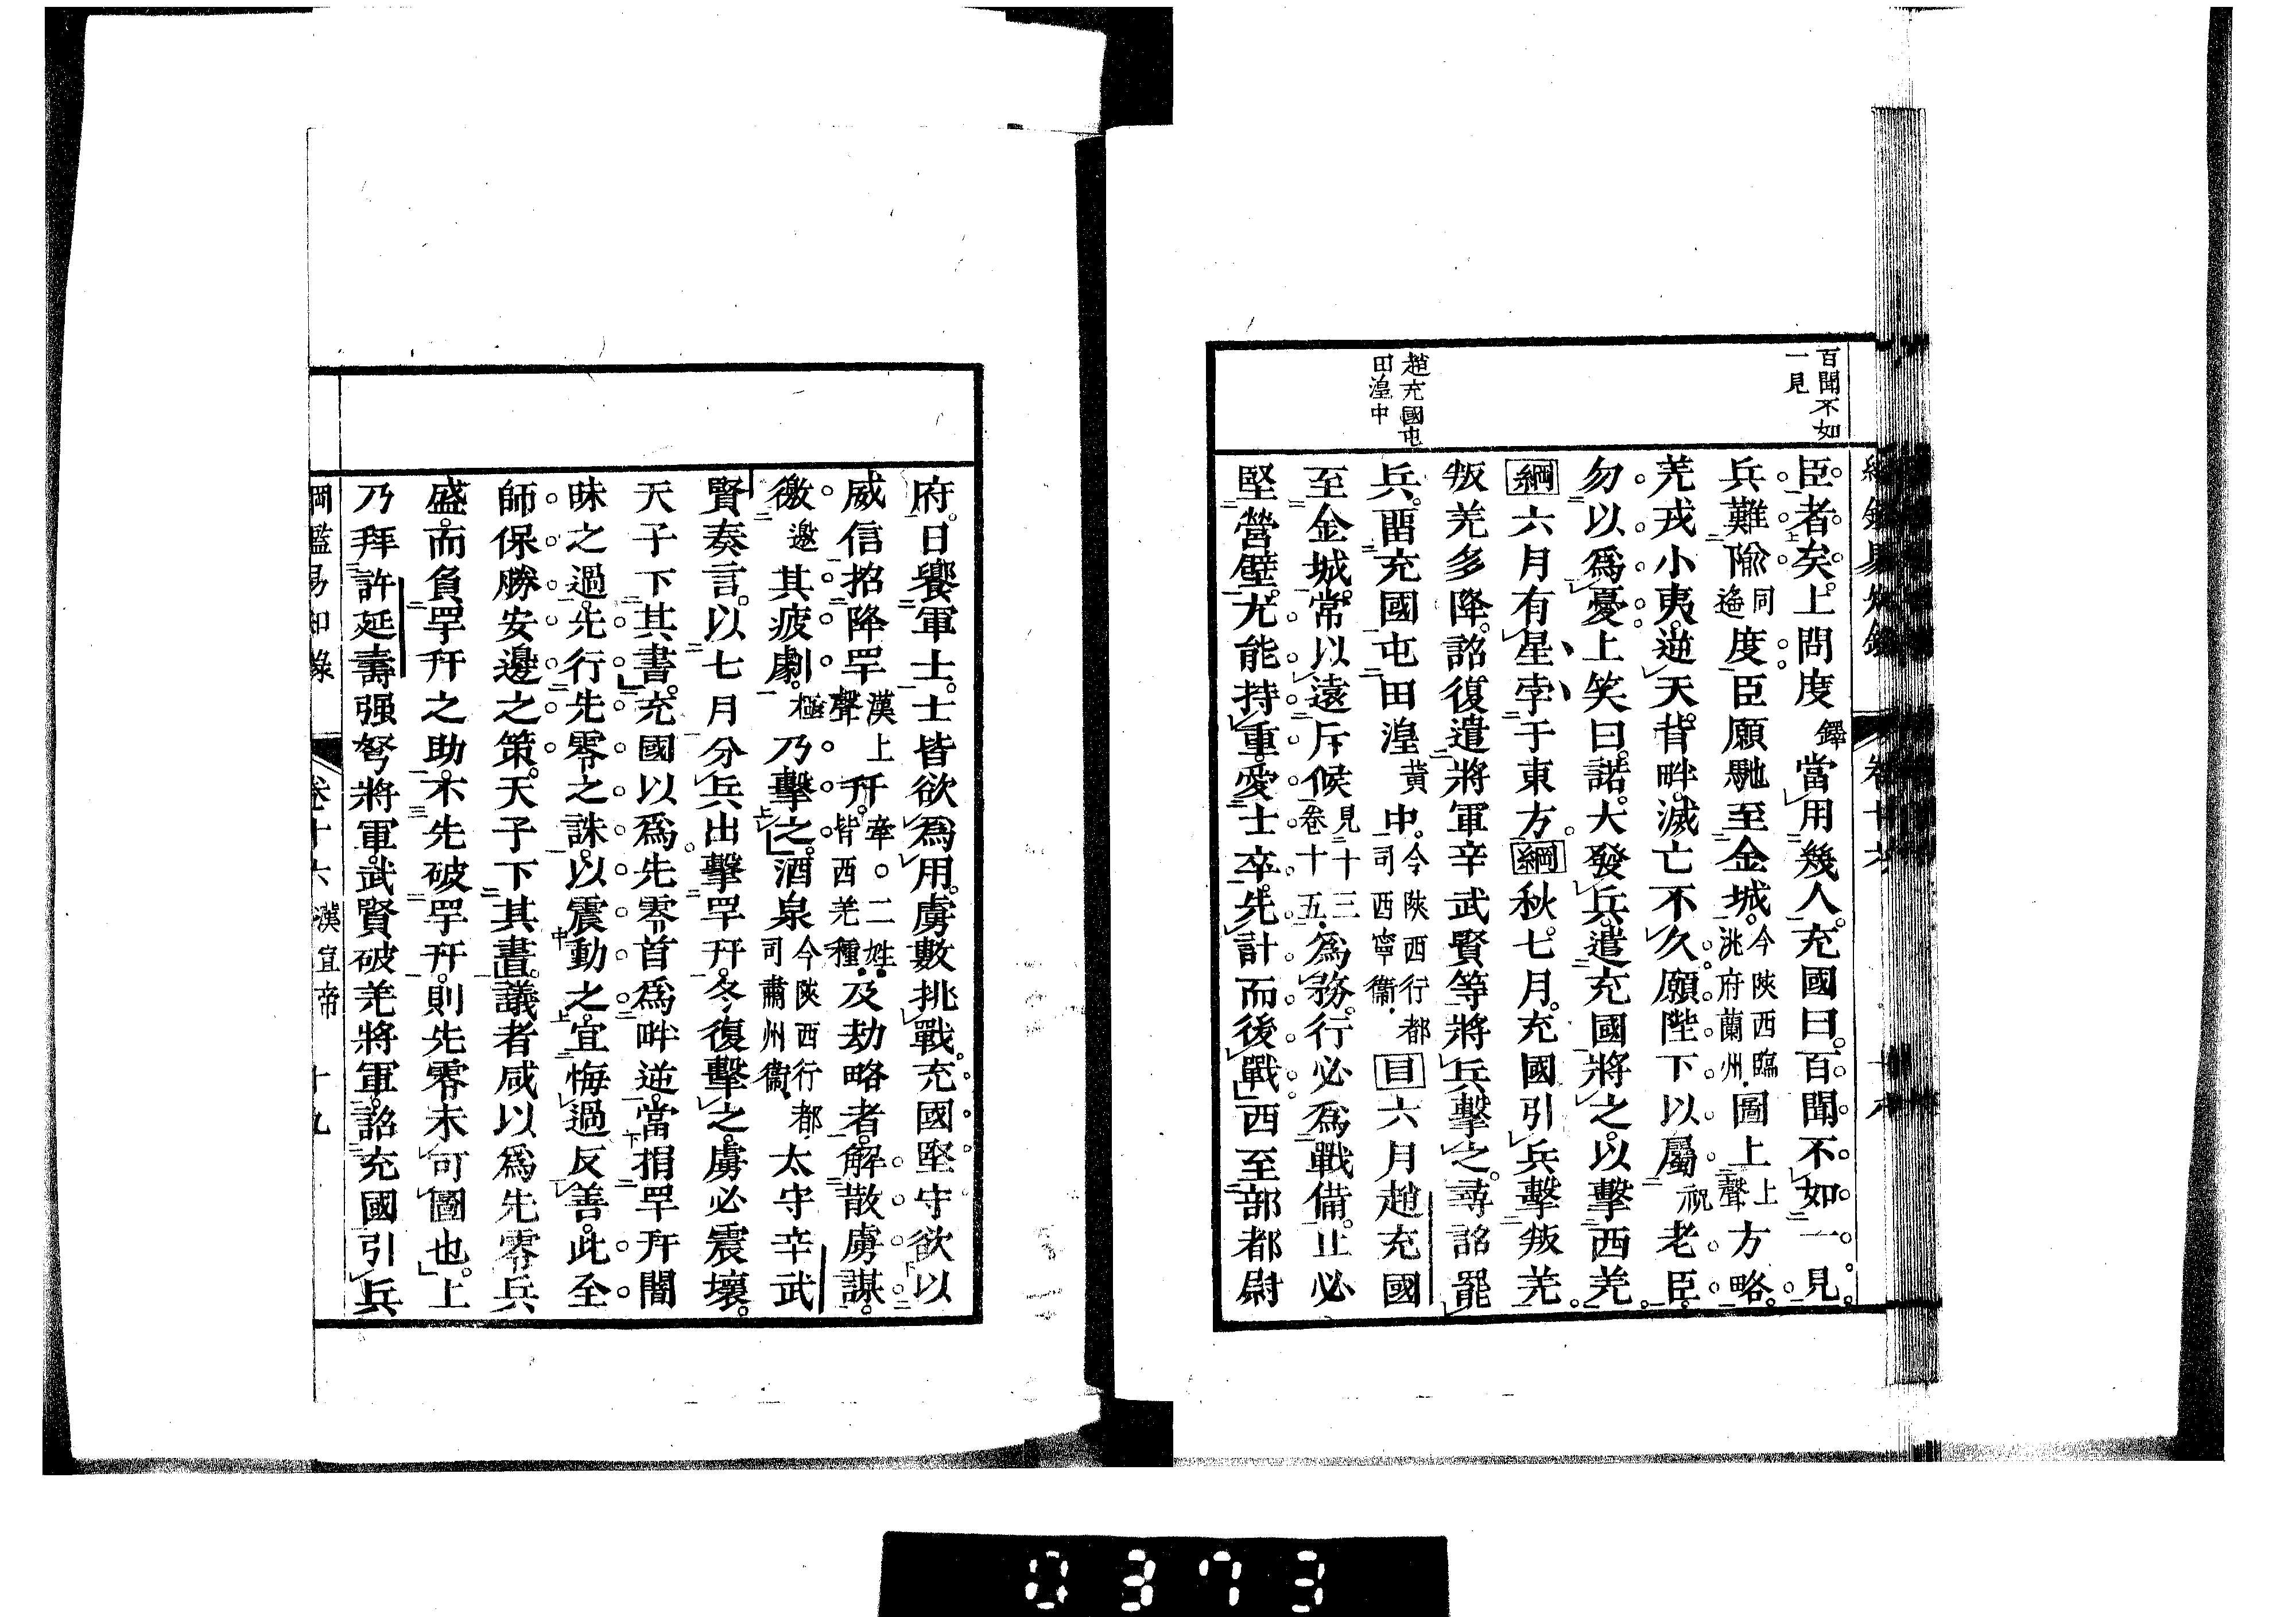 百聞不如
一見
臣者矣。上問度鐸當用幾人。充國曰。百聞不如一見。
兵難隃遙同度。臣願馳至金城。今陝西臨洮府蘭州。圖上上聲方略。
羌戎小夷。逆天背畔。滅亡不久。願陛下以屬祝老臣。
勿以爲憂。上笑曰。諾。大發兵。遣充國將之。以擊西羌。
綱六月有星孛于東方。綱秋。七月。充國引兵擊叛羌。
叛羌多降。詔復遣將軍辛武賢等將兵擊之。尋詔罷
趙充國屯
田湟中
兵。畱充國屯田湟黃中。今陝西行都司西寧衞。目六月趙充國
至金城。常以遠斥候見十三卷十五。爲務。行必爲戰備。止必
堅營壁。尤能持重。愛士卒。先計而後戰。西至部都尉
府。日饗軍士。士皆欲爲用。虜數挑戰。充國堅守。欲以
威信招降罕漢上聲幵。牽。二姓皆西羌種。及劫略者。解散虜謀。
徼邀其疲劇。極乃擊之。酒泉今陝西行都司肅州衞。太守辛武
賢奏言。以七月分兵出擊罕幵。冬復擊之。虜必震壞。
天子下其書。充國以爲先零首爲畔逆。當捐罕幵闇
昧之過。先行先零之誅。以震動之。宜悔過反善。此全
師保勝安邊之策。天子下其書。議者咸以爲先零兵
盛。而負罕幵之助。不先破罕幵。則先零未可圖也。上
乃拜許延壽强弩將軍。武賢破羌將軍。詔充國引兵
綱鑑易知錄 卷十六 漢宣帝 十九
0373